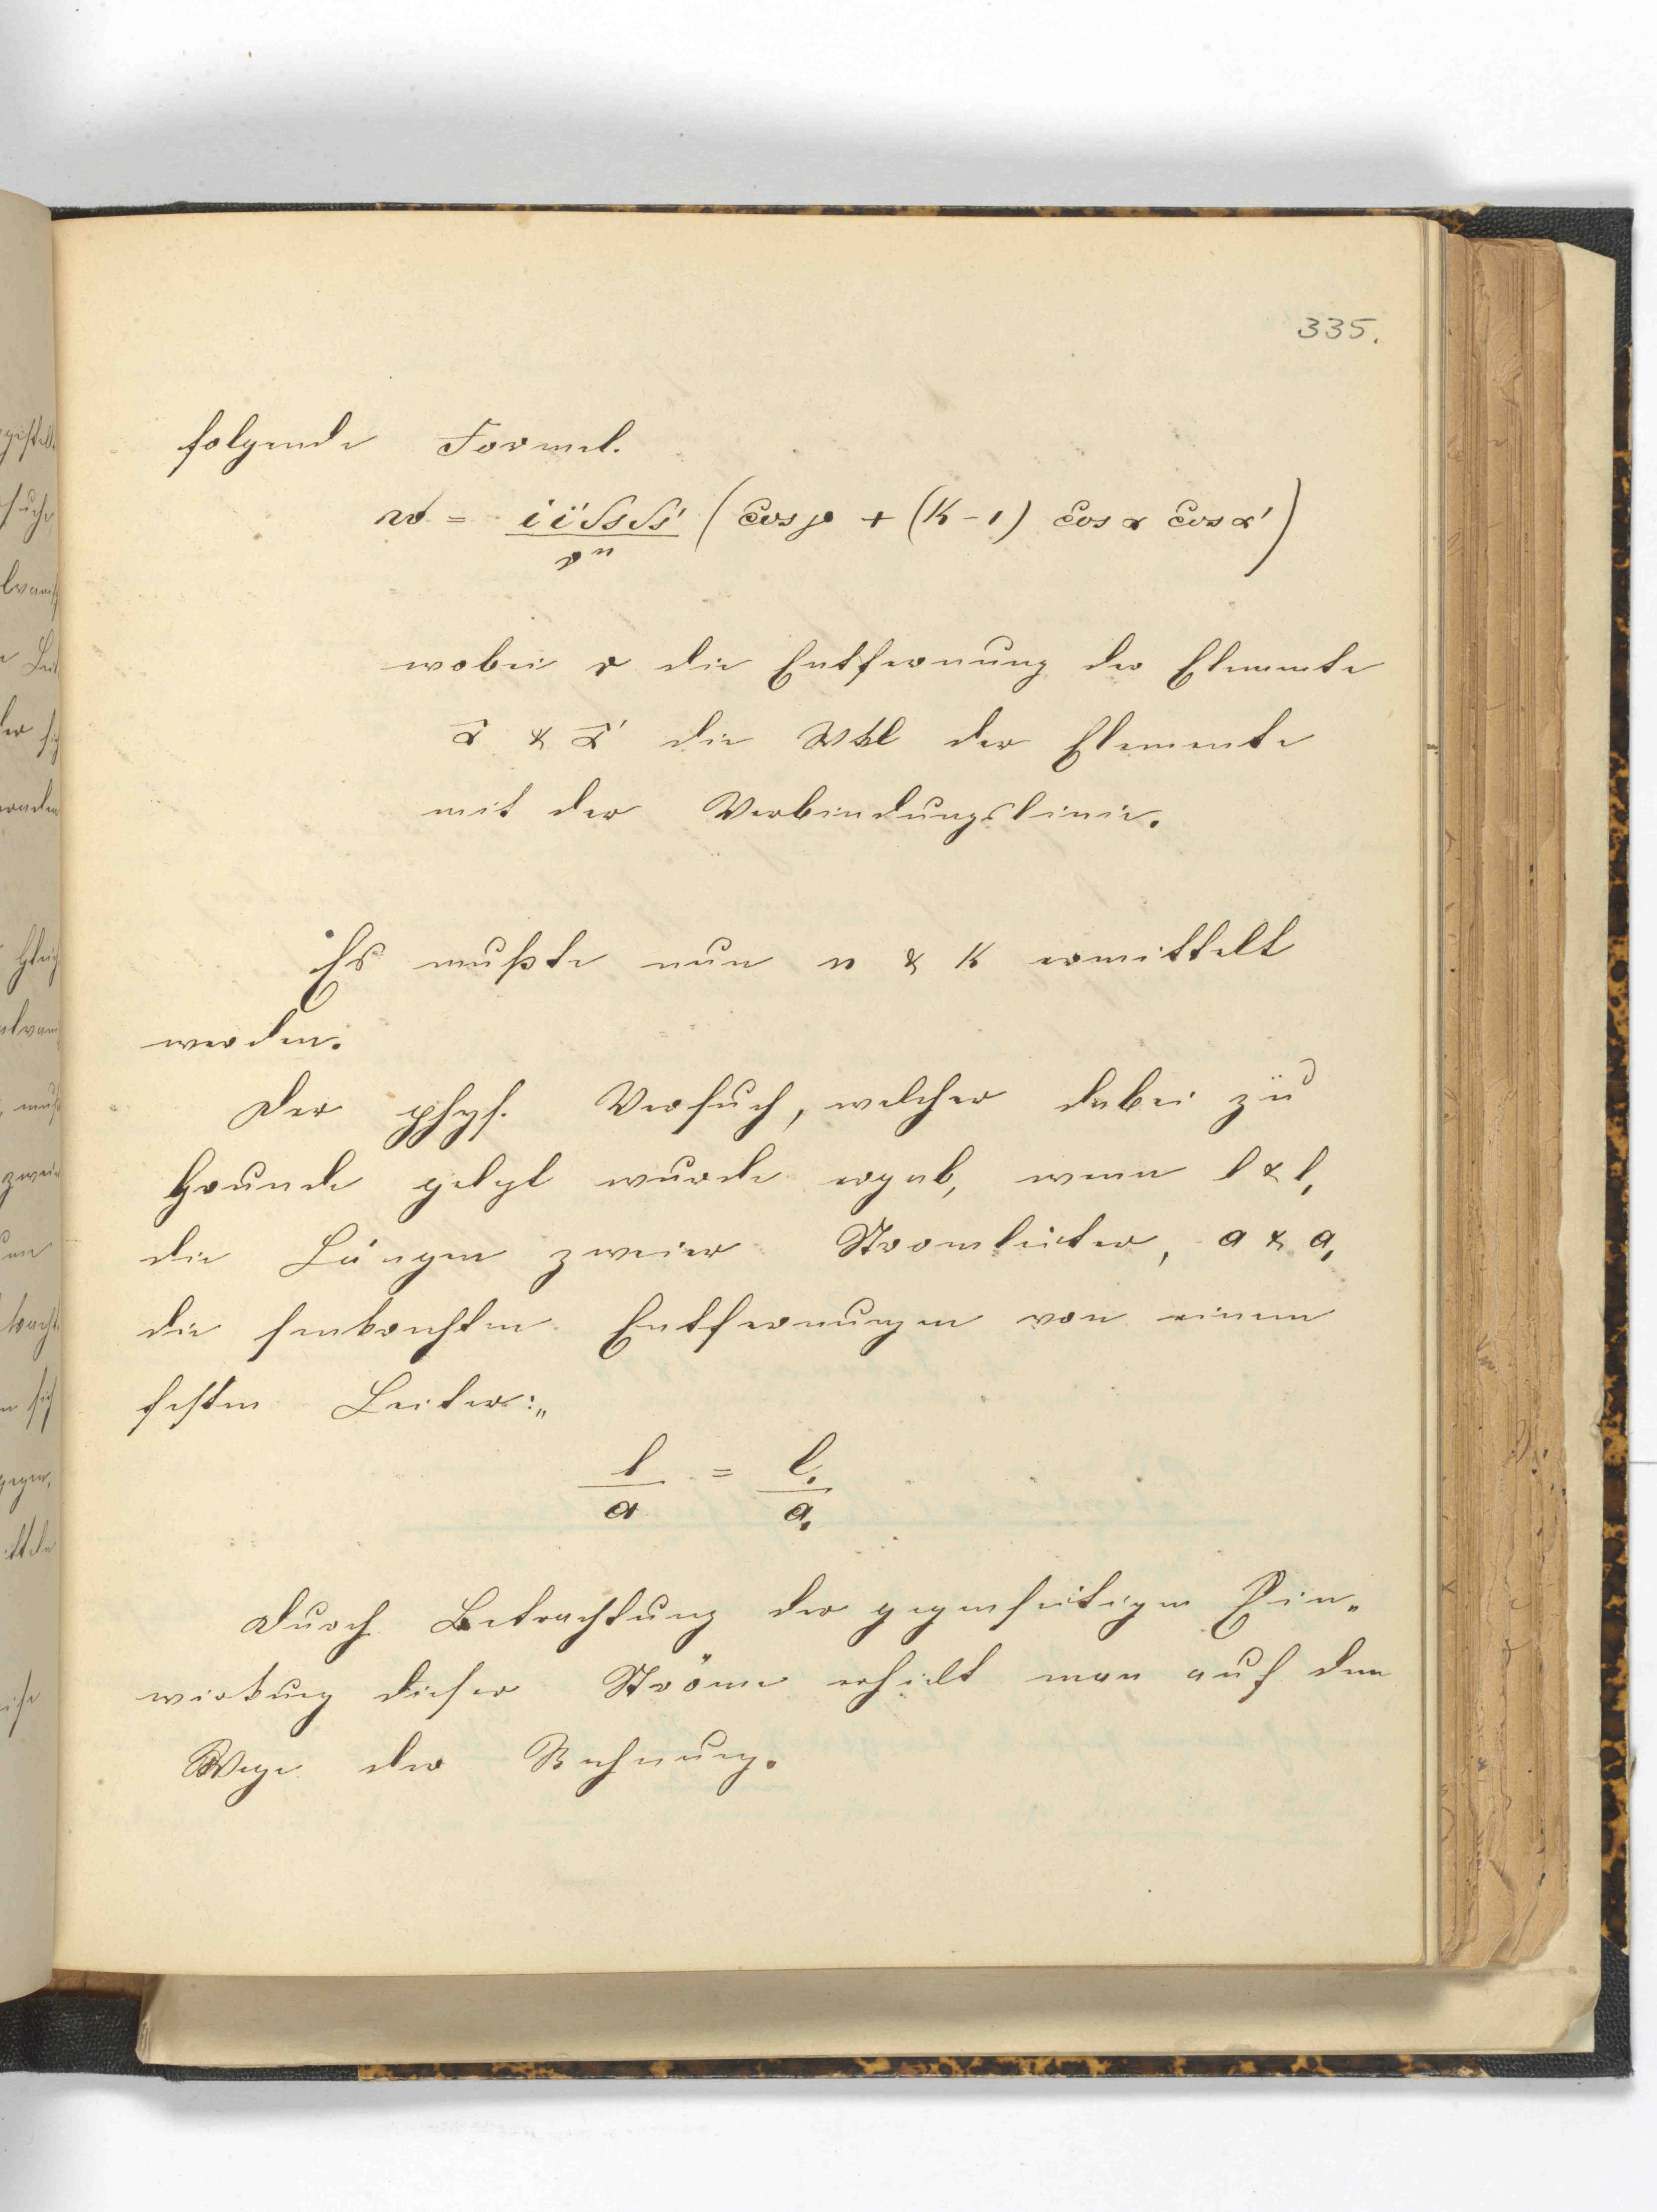 335.
folgende Formel.
w = i i' ds ds' / r^n ( cos ρ + (k-1) cos α cos α' )
wobei r die Entfernung der Elemente
α & α' die Wkl der Elemente
mit der Verbindungslinie.
Es mußte nun n & k ermittelt
werden.
Der phys. Versuch, welcher dabei zu
Grunde gelegt wurde ergab, wenn l & l,
die Längen zweier Stromleiter, a & a,
die senkrechten Entfernungen von einem
festen Leiter:„
l / a = l, / a,
Durch Betrachtung der gegenseitigen Ein„
wirkung dieser Ströme erhielt man auf dem
Wege der Rechnung.